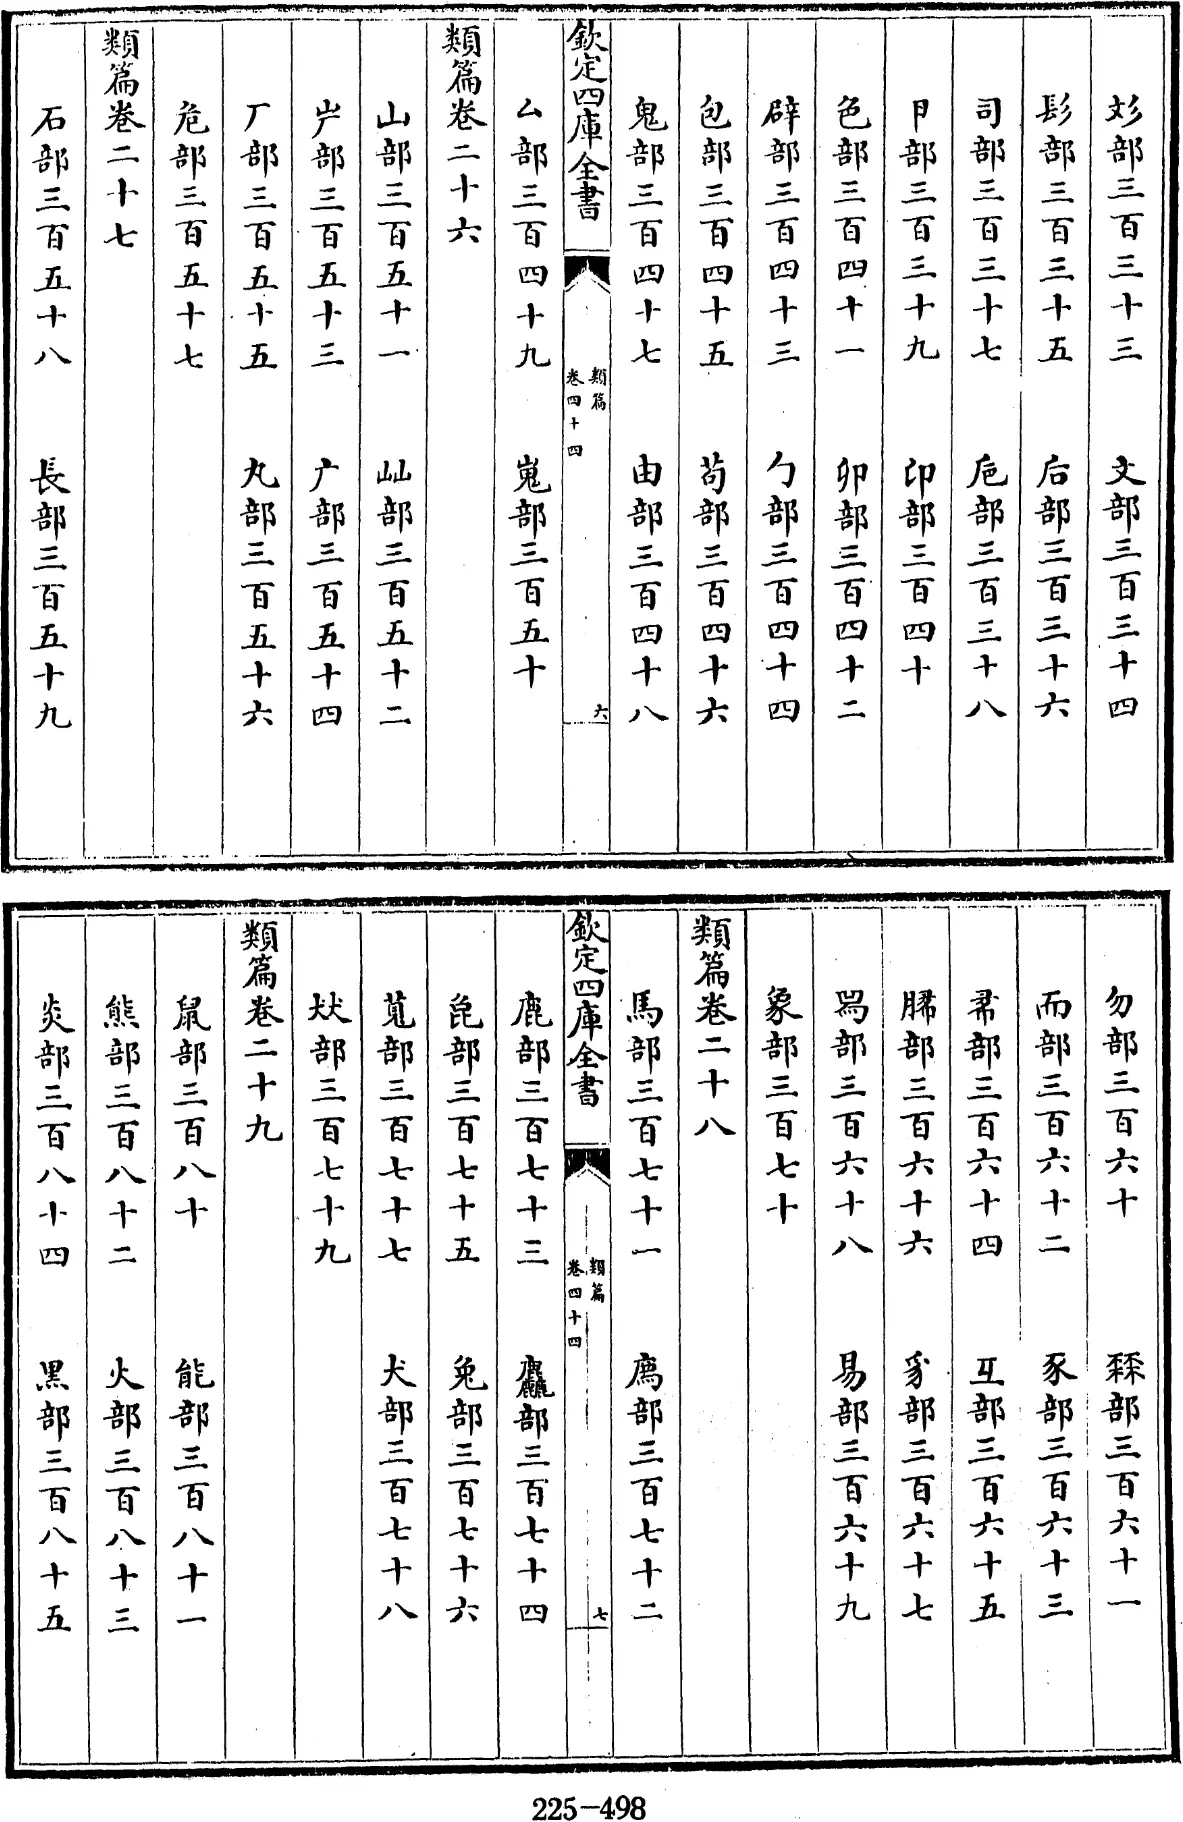 彣部三百三十三　文部三百三十四
髟部三百三十五　后部三百三十六
司部三百三十七　卮部三百三十八
卪部三百三十九　印部三百四十
色部三百四十一　卯部三百四十二
辟部三百四十三　勹部三百四十四
包部三百四十五　茍部三百四十六
鬼部三百四十七　甶部三百四十八
欽定四庫全書　類篇卷四十四　六
厶部三百四十九　嵬部三百五十
類篇卷二十六
山部三百五十一　屾部三百五十二
屵部三百五十三　广部三百五十四
厂部三百五十五　丸部三百五十六
危部三百五十七
類篇卷二十七
石部三百五十八　長部三百五十九
勿部三百六十　冄部三百六十一
而部三百六十二　豕部三百六十三
㣇部三百六十四　彑部三百六十五
豚部三百六十六　豸部三百六十七
𤉡部三百六十八　易部三百六十九
象部三百七十
類篇卷二十八
馬部三百七十一　廌部三百七十二
欽定四庫全書　類篇卷四十四　七
鹿部三百七十三　麤部三百七十四
㲋部三百七十五　兔部三百七十六
萈部三百七十七　犬部三百七十八
㹜部三百七十九
類篇卷二十九
鼠部三百八十　能部三百八十一
熊部三百八十二　火部三百八十三
炎部三百八十四　黑部三百八十五
225-498